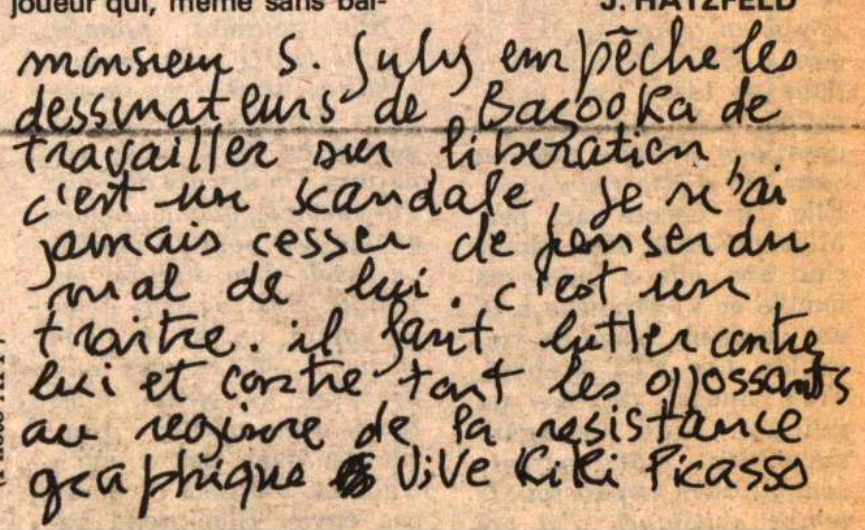 joueur qui, même sans bal-
J. HATZFELD
monsieur S. July empêche les
dessinateurs de Bazooka de
travailler sur libération,
c'est un scandale, je n'ai
jamais cesser de penser du
mal de lui. c'est un
traitre. il faut lutter contre
lui et contre tout les opossants
au regime de la resistance
graphique ViVe KiKi Picasso